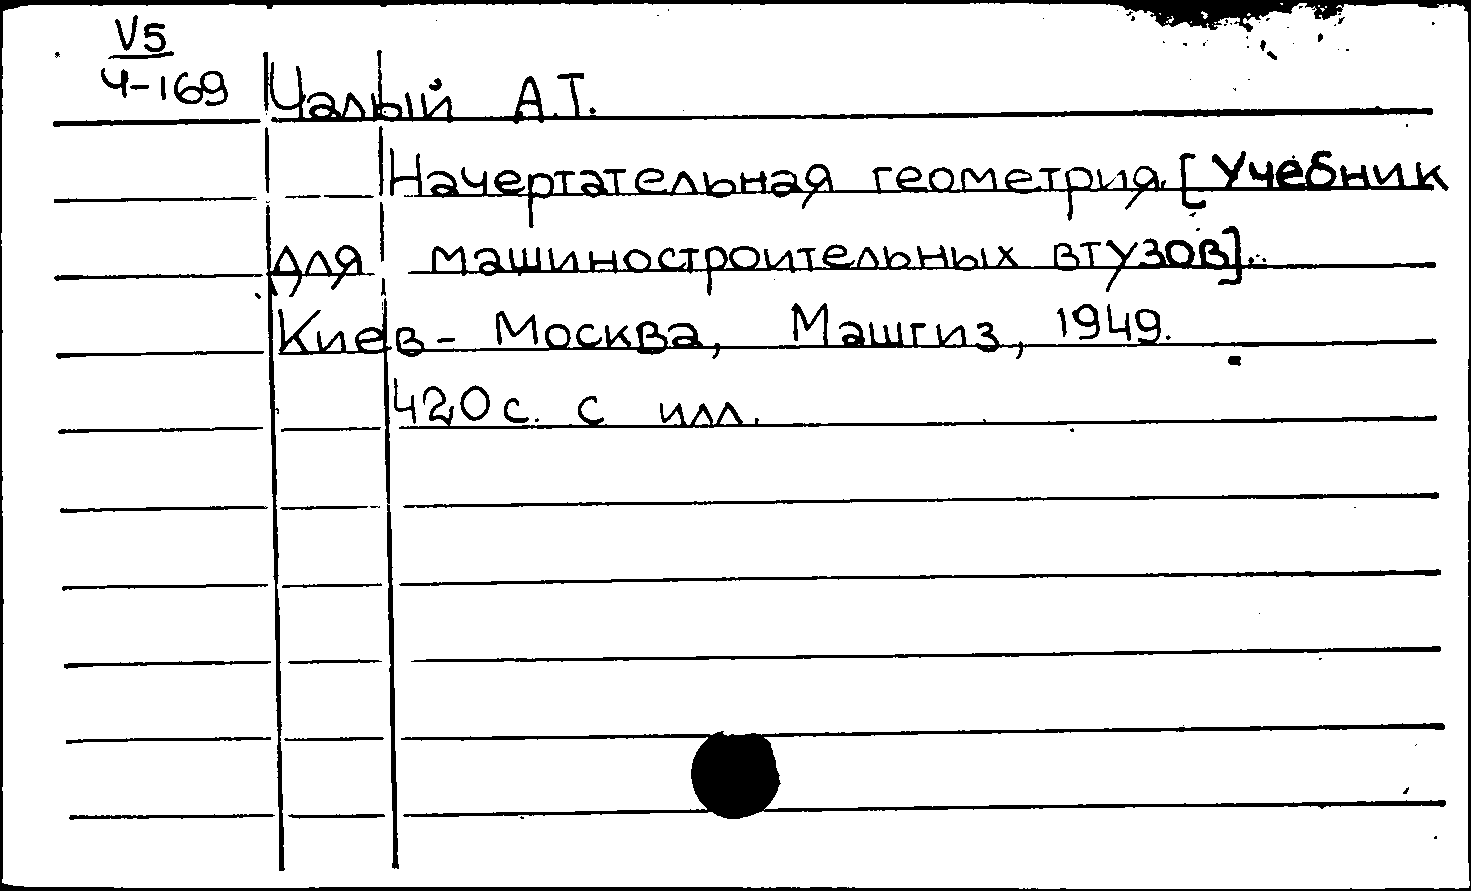 V5
Ч-169
Чалый А.Т.
Начертательная геометрия. [Учебник
для машиностроительных втузов].
Киев - Москва, Машгиз, 1949.
420 с. с илл.